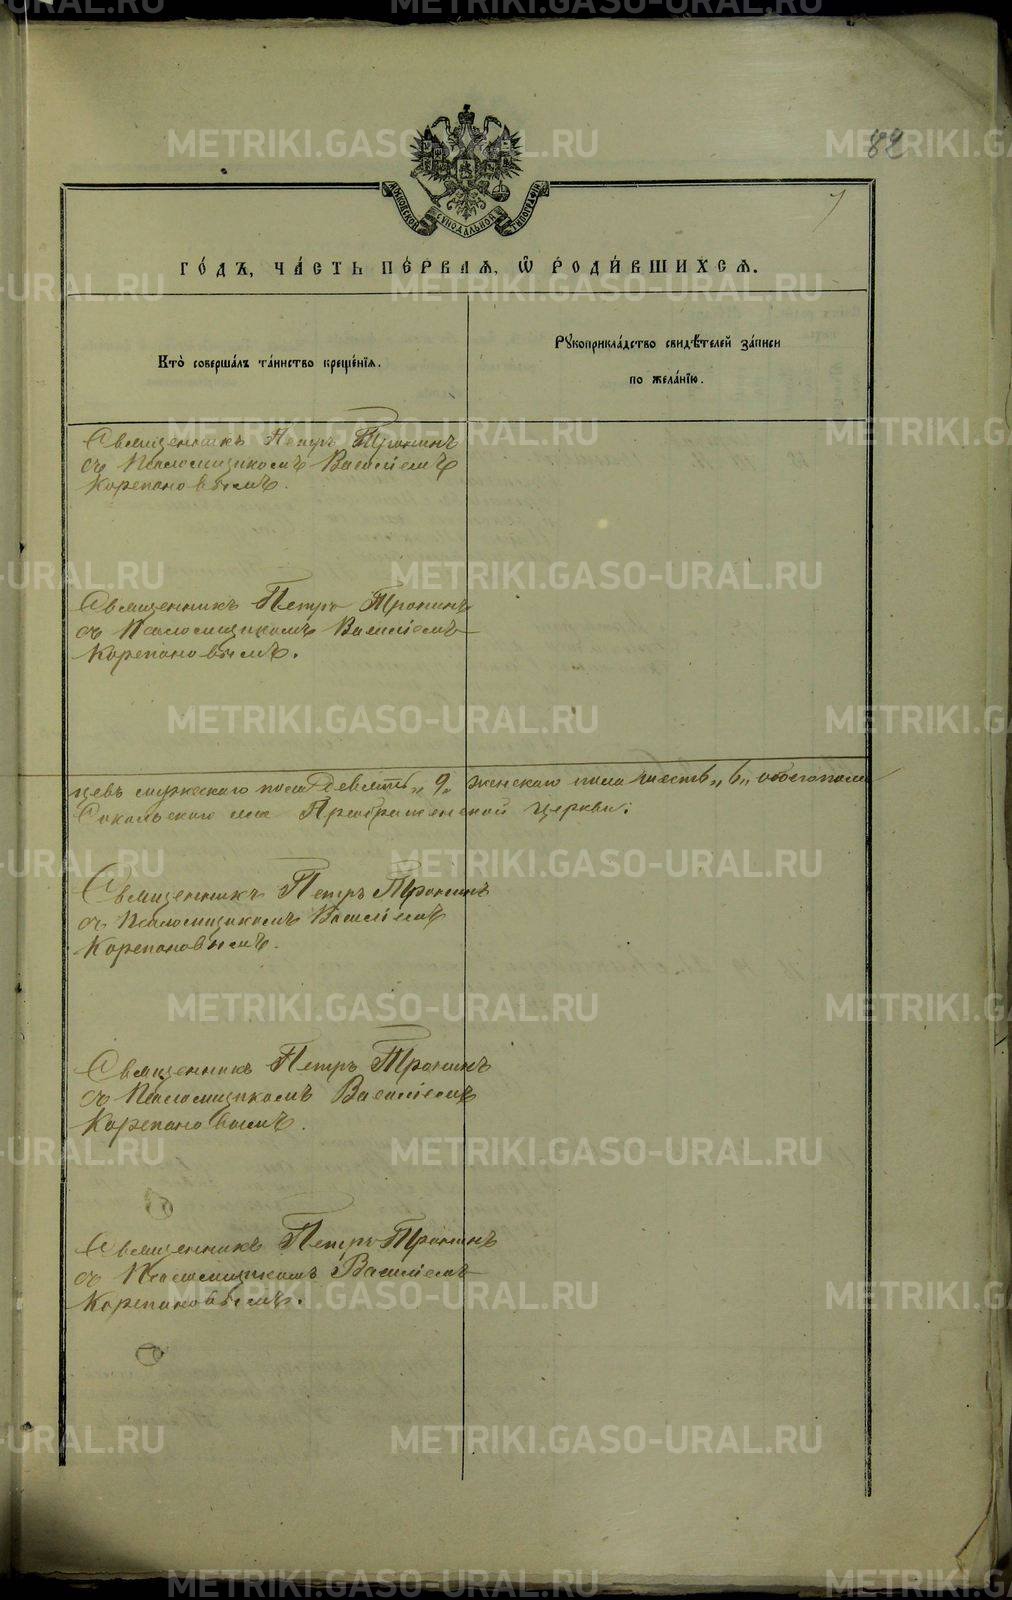 82
7
МОСКОВСКОЙ СѴНОДАЛЬНОЙ ТИПОГРАФІИ
ГО́ДЪ, ЧА́СТЬ ПЕ́РВАѦ, Ѡ҆ РОДИ́ВШИХСѦ.
Кто̀ соверша́лъ та́инство креще́нїѧ.
Рꙋкоприкла́дство свидѣ́телей за́писи
по жела́нїю.
Священникъ Петръ Тронинъ
съ Псаломщикомъ Василіемъ
Корепановымъ.
Священникъ Петръ Тронинъ
съ Псаломщикомъ Василіемъ
Корепановымъ.
цевъ мужескаго пола Девять „9„ женскаго пола шесть „6„ обоего пола
Сокольскаго Преображенской церкви:
Священникъ Петръ Тронинъ
съ Псаломщикомъ Василіемъ
Корепановымъ.
Священникъ Петръ Тронинъ
съ Псаломщикомъ Василіемъ
Корепановымъ.
Священникъ Петръ Тронинъ
съ Псаломщикомъ Василіемъ
Корепановымъ.
METRIKI.GASO-URAL.RU